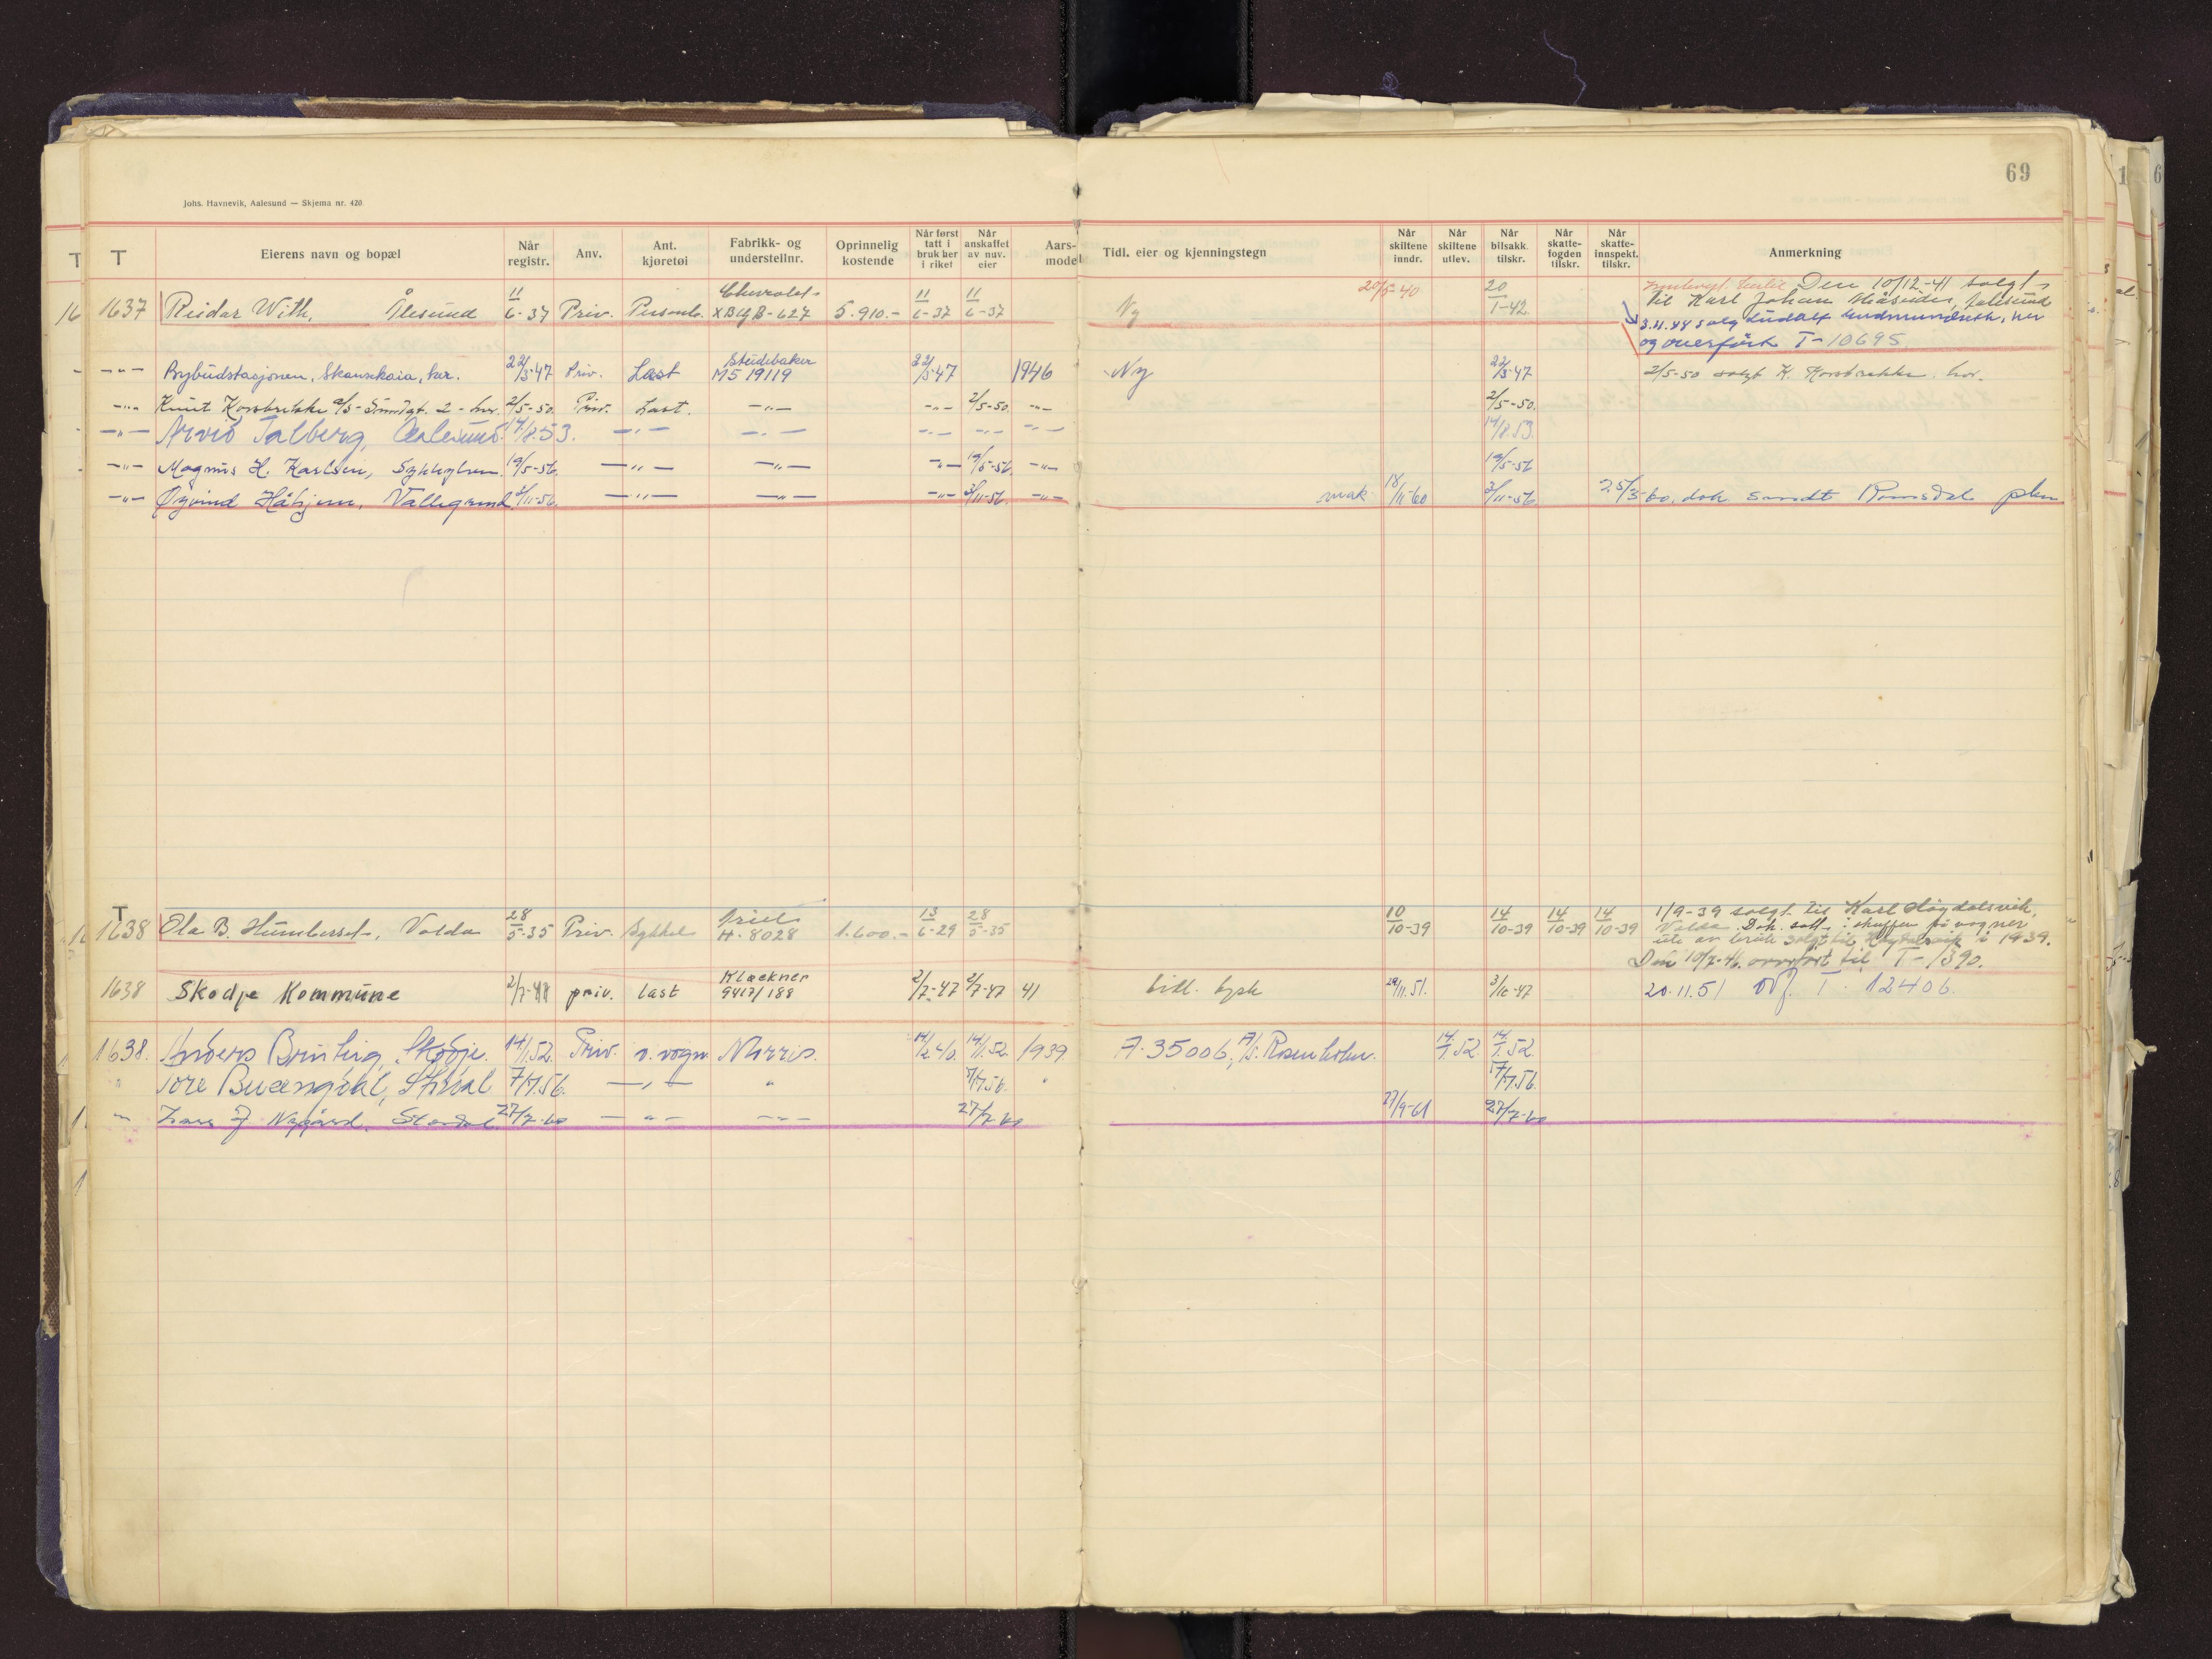 69
Johs. Havnevik, Aalesund — Skjema nr. 420.
T Eierens navn og bopæl Når registr. Anv. Ant. kjøretøi Fabrikk- og understellnr. Oprinnelig kostende Når først tatt i bruk her i riket Når anskaffet av nuv. eier Aars-model Tidl. eier og kjenningstegn Når skiltene inndr. Når skiltene utlev. Når bilsakk. tilskr. Når skatte-fogden tilskr. Når skatte-innspekt. tilskr. Anmerkning
1637 Reidar With, Ålesund 11/6-37 Priv. Personb. Chevrolet XBYB-627 5.910.- 11/6-37 11/6-37 Ny 20/5-40 20/1-42 Den 10/12-41 solgt
til Karl Johan Aalesund
3.11.48 solg her
og overført T-10695
-"- Bybudstasjonen, Skanskaia, her. 22/5-47 Priv. Last Studebaker M5 19119 22/5-47 1946 Ny 22/5-47 2/5-50 solgt K. Korsbrekke her.
-"- Knut Korsbrekke 2 - her. 2/5-50. Priv. Last. -"- -"- 2/5-50. -"- 2/5-50.
-"- Arvid Talberg, Aalesund. 14/8.53. -"- -"- -"- -"- -"- 14/8.53.
-"- Magnus H. Karlsen, Sykkylven. 19/5-56. -"- -"- -"- 19/5-56. -"- 19/5-56
-"- Øyvind Håhjem, Vallegrend. 3/11-56. -"- -"- -"- 3/11-56. -"- vrak 18/11-60 3/11-56. 25/3-60. dok sendt Romsdal pkm
T
1638 Ola B. Humberset, Volda 28/5-35 Priv. Sykkel Ariel H-8028 1.600.- 13/6-29 28/5-35 10/10-39 14/10-39 14/10-39 14/10-39 1/9-39 solgt til Karl Høydalsvik,
Volda. Dok. satt i skuffen på vogner
ute av bruk solgt til Høydalsvik i 1939.
Den 10/7-46. overført til T-1390.
1638 Skodje Kommune 2/7-47 priv. last Klöckner 9417/188 2/7-47 2/7-47 41 tidl. tysk 29/11.51. 3/10-47 20.11.51 ovf. T. 12406.
1638. Anders Brinling, Skodje. 14/1.52. Priv. v.vogn Morris. 14/2 40. 14/1.52. 1939 A-35006, A/S. Rosenholm. 14/1.52. 14/1.52.
" Tore Stordal 7/7.56. -"- " 7/7.56. " 7/7.56.
-"- Lars J. Nygård, Stordal. 27/7-60 -"- -"- 27/7-60 27/9-61 27/7-60